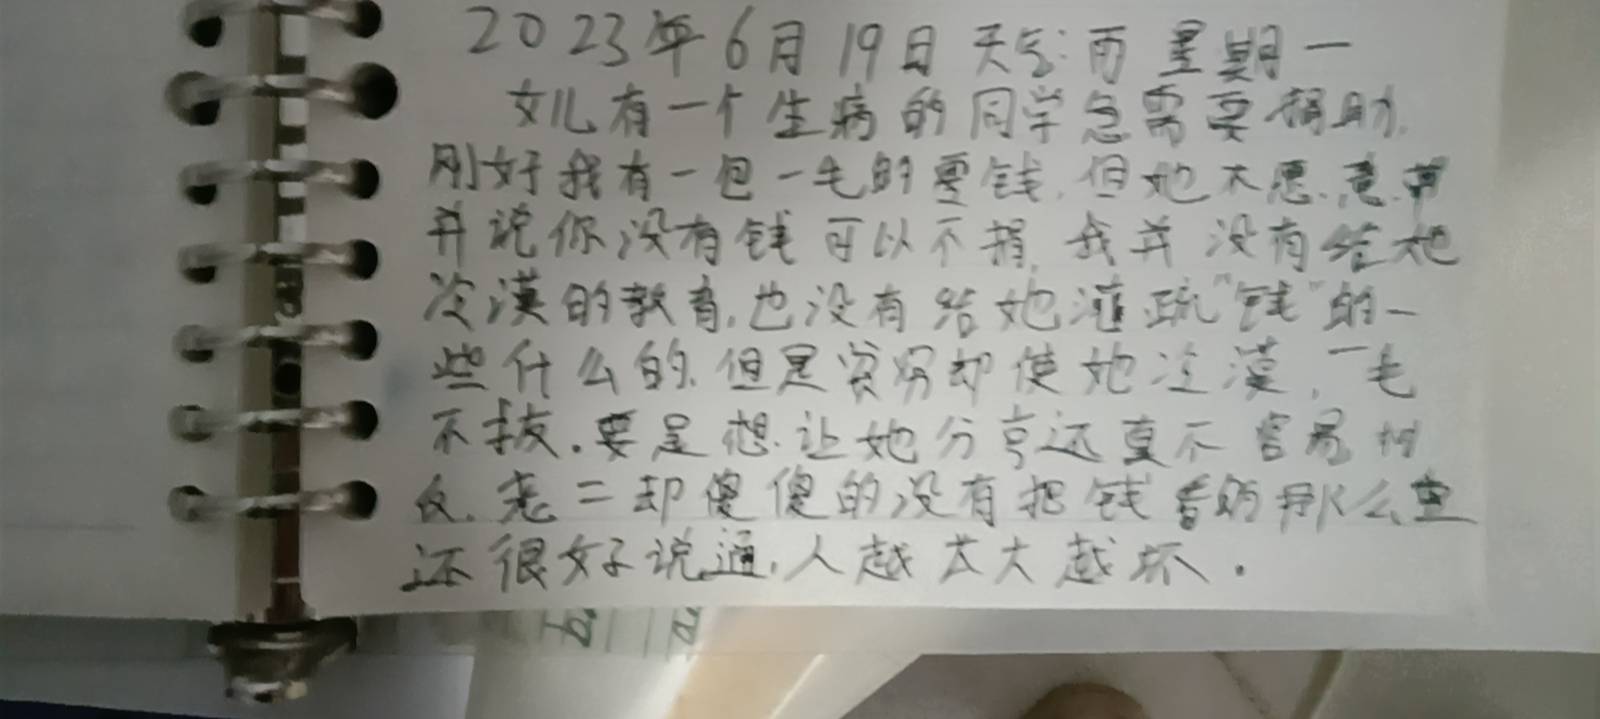 2023年6月19日 天气:雨 星期一
女儿有一个生病的同学急需要捐助,
刚好我有一包一毛的零钱,但她不愿意,
并说你没有钱可以不捐,我并没有给她
冷漠的教育,也没有给她灌疏"钱"的一
些什么的,但是贫穷却使她冷漠,一毛
不拔.要是想让她分享还真不容易,相
反,老二却傻傻的没有把钱看的那么重
还很好说通,人越大越坏.